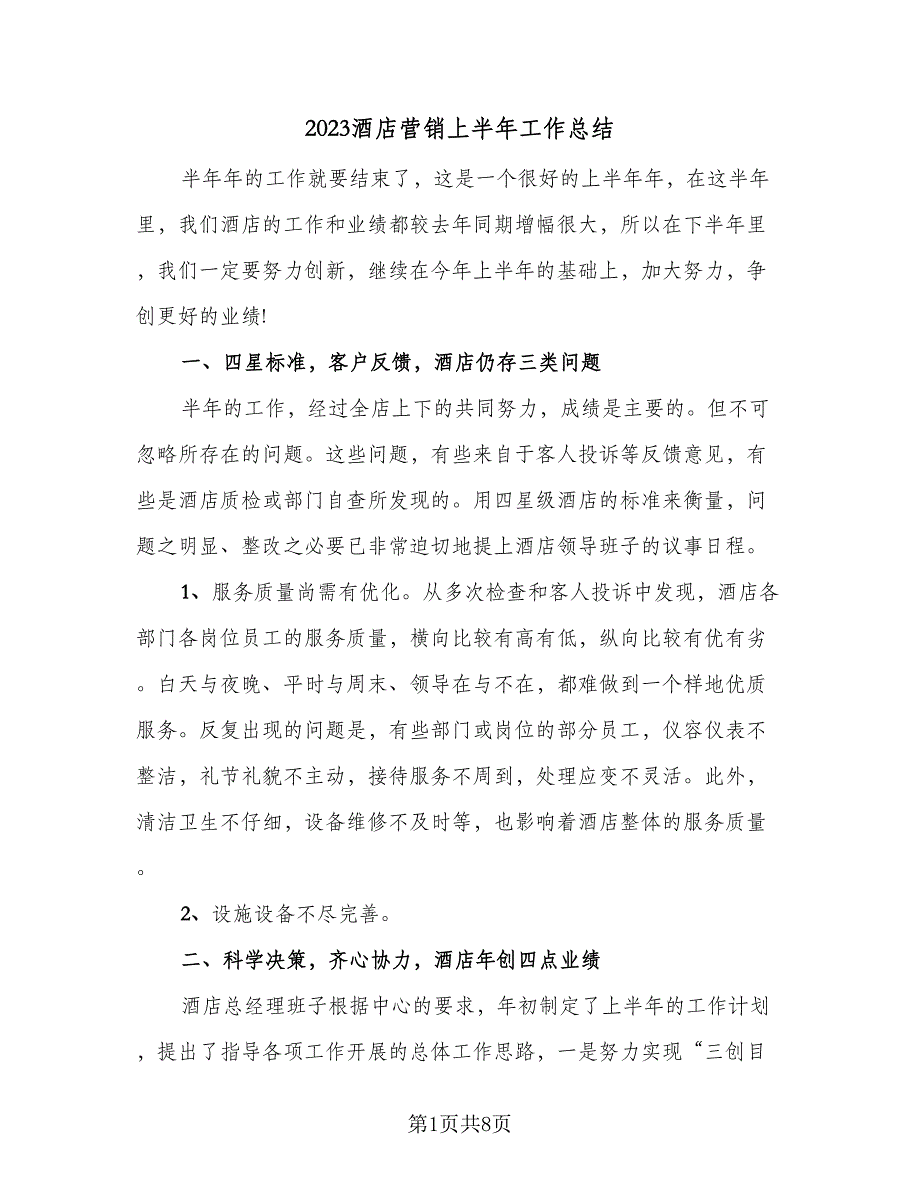 2023酒店营销上半年工作总结
半年年的工作就要结束了，这是一个很好的上半年年，在这半年
里，我们酒店的工作和业绩都较去年同期增幅很大，所以在下半年里
，我们一定要努力创新，继续在今年上半年的基础上，加大努力，争
创更好的业绩!
一、四星标准，客户反馈，酒店仍存三类问题
半年的工作，经过全店上下的共同努力，成绩是主要的。但不可
忽略所存在的问题。这些问题，有些来自于客人投诉等反馈意见，有
些是酒店质检或部门自查所发现的。用四星级酒店的标准来衡量，问
题之明显、整改之必要已非常迫切地提上酒店领导班子的议事日程。
1、服务质量尚需有优化。从多次检查和客人投诉中发现，酒店各
部门各岗位员工的服务质量，横向比较有高有低，纵向比较有优有劣
。白天与夜晚、平时与周末、领导在与不在，都难做到一个样地优质
服务。反复出现的问题是，有些部门或岗位的部分员工，仪容仪表不
整洁，礼节礼貌不主动，接待服务不周到，处理应变不灵活。此外，
清洁卫生不仔细，设备维修不及时等，也影响着酒店整体的服务质量
。
2、设施设备不尽完善。
二、科学决策，齐心协力，酒店年创四点业绩
酒店总经理班子根据中心的要求，年初制定了上半年的工作计划
，提出了指导各项工作开展的总体工作思路，一是努力实现“三创目
第1页共8页